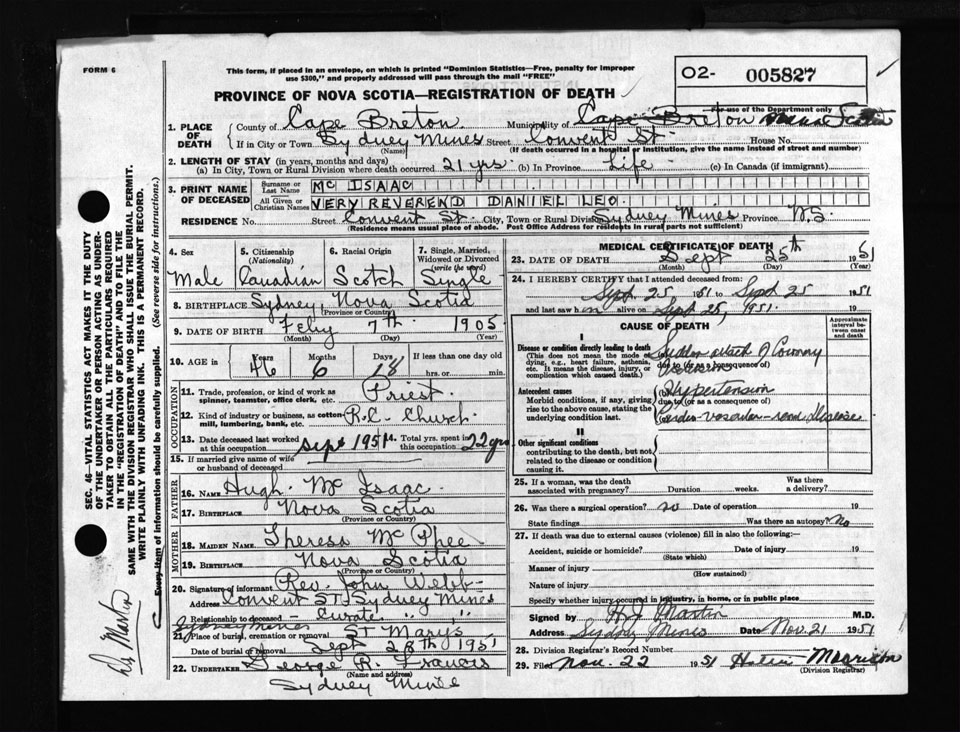 FORM 6
This form, if placed in an envelope, on which is printed "Dominion Statistics—Free, penalty for improper
use $300," and properly addressed will pass through the mail "FREE"
O2- 005827
PROVINCE OF NOVA SCOTIA—REGISTRATION OF DEATH
For use of the Department only
1. PLACE OF DEATH County of Cape Breton Municipality of Cape Breton Nova Scotia
If in City or Town Sydney Mines Street Convent St. House No.
(Name) (If death occurred in a hospital or institution, give the name instead of street and number)
2. LENGTH OF STAY (in years, months and days)
(a) In City, Town or Rural Division where death occurred 21 yrs. (b) In Province Life (c) In Canada (if immigrant)
3. PRINT NAME OF DECEASED Surname or Last Name MC ISAAC
All Given or Christian Names VERY REVEREND DANIEL LEO.
RESIDENCE No. Street Convent St. City, Town or Rural Division Sydney Mines Province N.S.
(Residence means usual place of abode. Post Office Address for residents in rural parts not sufficient)
4. Sex 5. Citizenship (Nationality) 6. Racial Origin 7. Single, Married, Widowed or Divorced (write the word)
Male Canadian Scotch Single
8. BIRTHPLACE Sydney, Nova Scotia
(Province or Country)
9. DATE OF BIRTH Feby 7th 1905
(Month) (Day) (Year)
10. AGE in Years 46 Months 6 Days 18 If less than one day old
hrs. or min.
OCCUPATION
11. Trade, profession, or kind of work as spinner, teamster, office clerk, etc. Priest
12. Kind of industry or business, as cotton mill, lumbering, bank, etc. R.C. Church
13. Date deceased last worked at this occupation Sept 1951 14. Total yrs. spent in this occupation 22 yrs
15. If married give name of wife or husband of deceased
FATHER
16. NAME Hugh Mc Isaac.
17. BIRTHPLACE Nova Scotia
(Province or Country)
MOTHER
18. MAIDEN NAME Theresa Mc Phee
19. BIRTHPLACE Nova Scotia
(Province or Country)
20. Signature of informant Rev. John Webb
Address Convent ST. Sydney Mines
Relationship to deceased Curate
Sydney Mines
21. Place of burial, cremation or removal ST Marys
Date of burial or removal Sept 28th 1951
22. UNDERTAKER George R. Francis
(Name and address)
Sydney Mines
MEDICAL CERTIFICATE OF DEATH
23. DATE OF DEATH Sept 25th 1951
(Month) (Day) (Year)
24. I HEREBY CERTIFY that I attended deceased from:
Sept. 25 1951 to Sept 25 1951
and last saw h im alive on Sept 25, 1951. 19
CAUSE OF DEATH
Approximate interval between onset and death
I
Disease or condition directly leading to death
(This does not mean the mode of dying, e.g., heart failure, asthenia, etc. It means the disease, injury, or complication which caused death.)
(a) Sudden attack of Coronary
due to (or as a consequence of)
Antecedent causes
Morbid conditions, if any, giving rise to the above cause, stating the underlying condition last.
(b) Hypertension
due to (or as a consequence of)
(c) Cardio-vascular-renal disease
II
Other significant conditions
contributing to the death, but not related to the disease or condition causing it.
25. If a woman, was the death associated with pregnancy? Duration weeks. Was there a delivery?
26. Was there a surgical operation? no Date of operation 19
State findings Was there an autopsy? No
27. If death was due to external causes (violence) fill in also the following:
Accident, suicide or homicide? Date of injury 19
(State which)
Manner of injury
(How sustained)
Nature of injury
Specify whether injury occurred in industry, in home, or in public place
Signed by H.J. Martin M.D.
Address Sydney Mines Date Nov. 21 1951
28. Division Registrar's Record Number
29. Filed Nov. 22 1951 Helen Morrison
(Division Registrar)
SEC. 46—VITAL STATISTICS ACT MAKES IT THE DUTY
OF THE UNDERTAKER OR PERSON ACTING AS UNDER-
TAKER TO OBTAIN ALL THE PARTICULARS REQUIRED
IN THE "REGISTRATION OF DEATH" AND TO FILE THE
SAME WITH THE DIVISION REGISTRAR WHO SHALL ISSUE THE BURIAL PERMIT.
WRITE PLAINLY WITH UNFADING INK. THIS IS A PERMANENT RECORD.
Every item of information should be carefully supplied. (See reverse side for instructions.)
Dr Martin